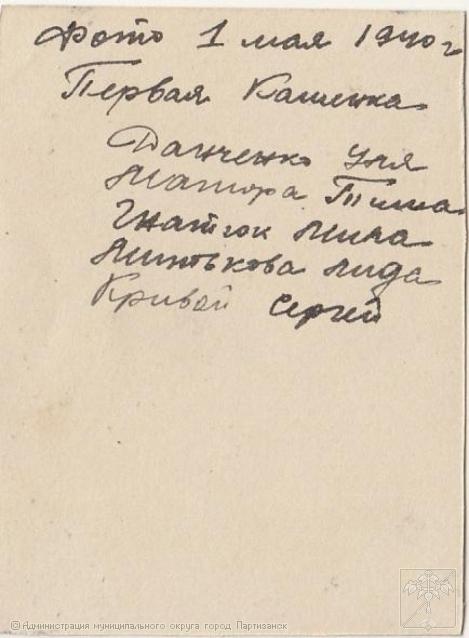 Фото 1 мая 1940 г
Первая Каменка
Данченко Уля
Мамора Тима
Гнатюк Мила
Минькова Лида
Кривой Сергей
© Администрация муниципального округа город Партизанск